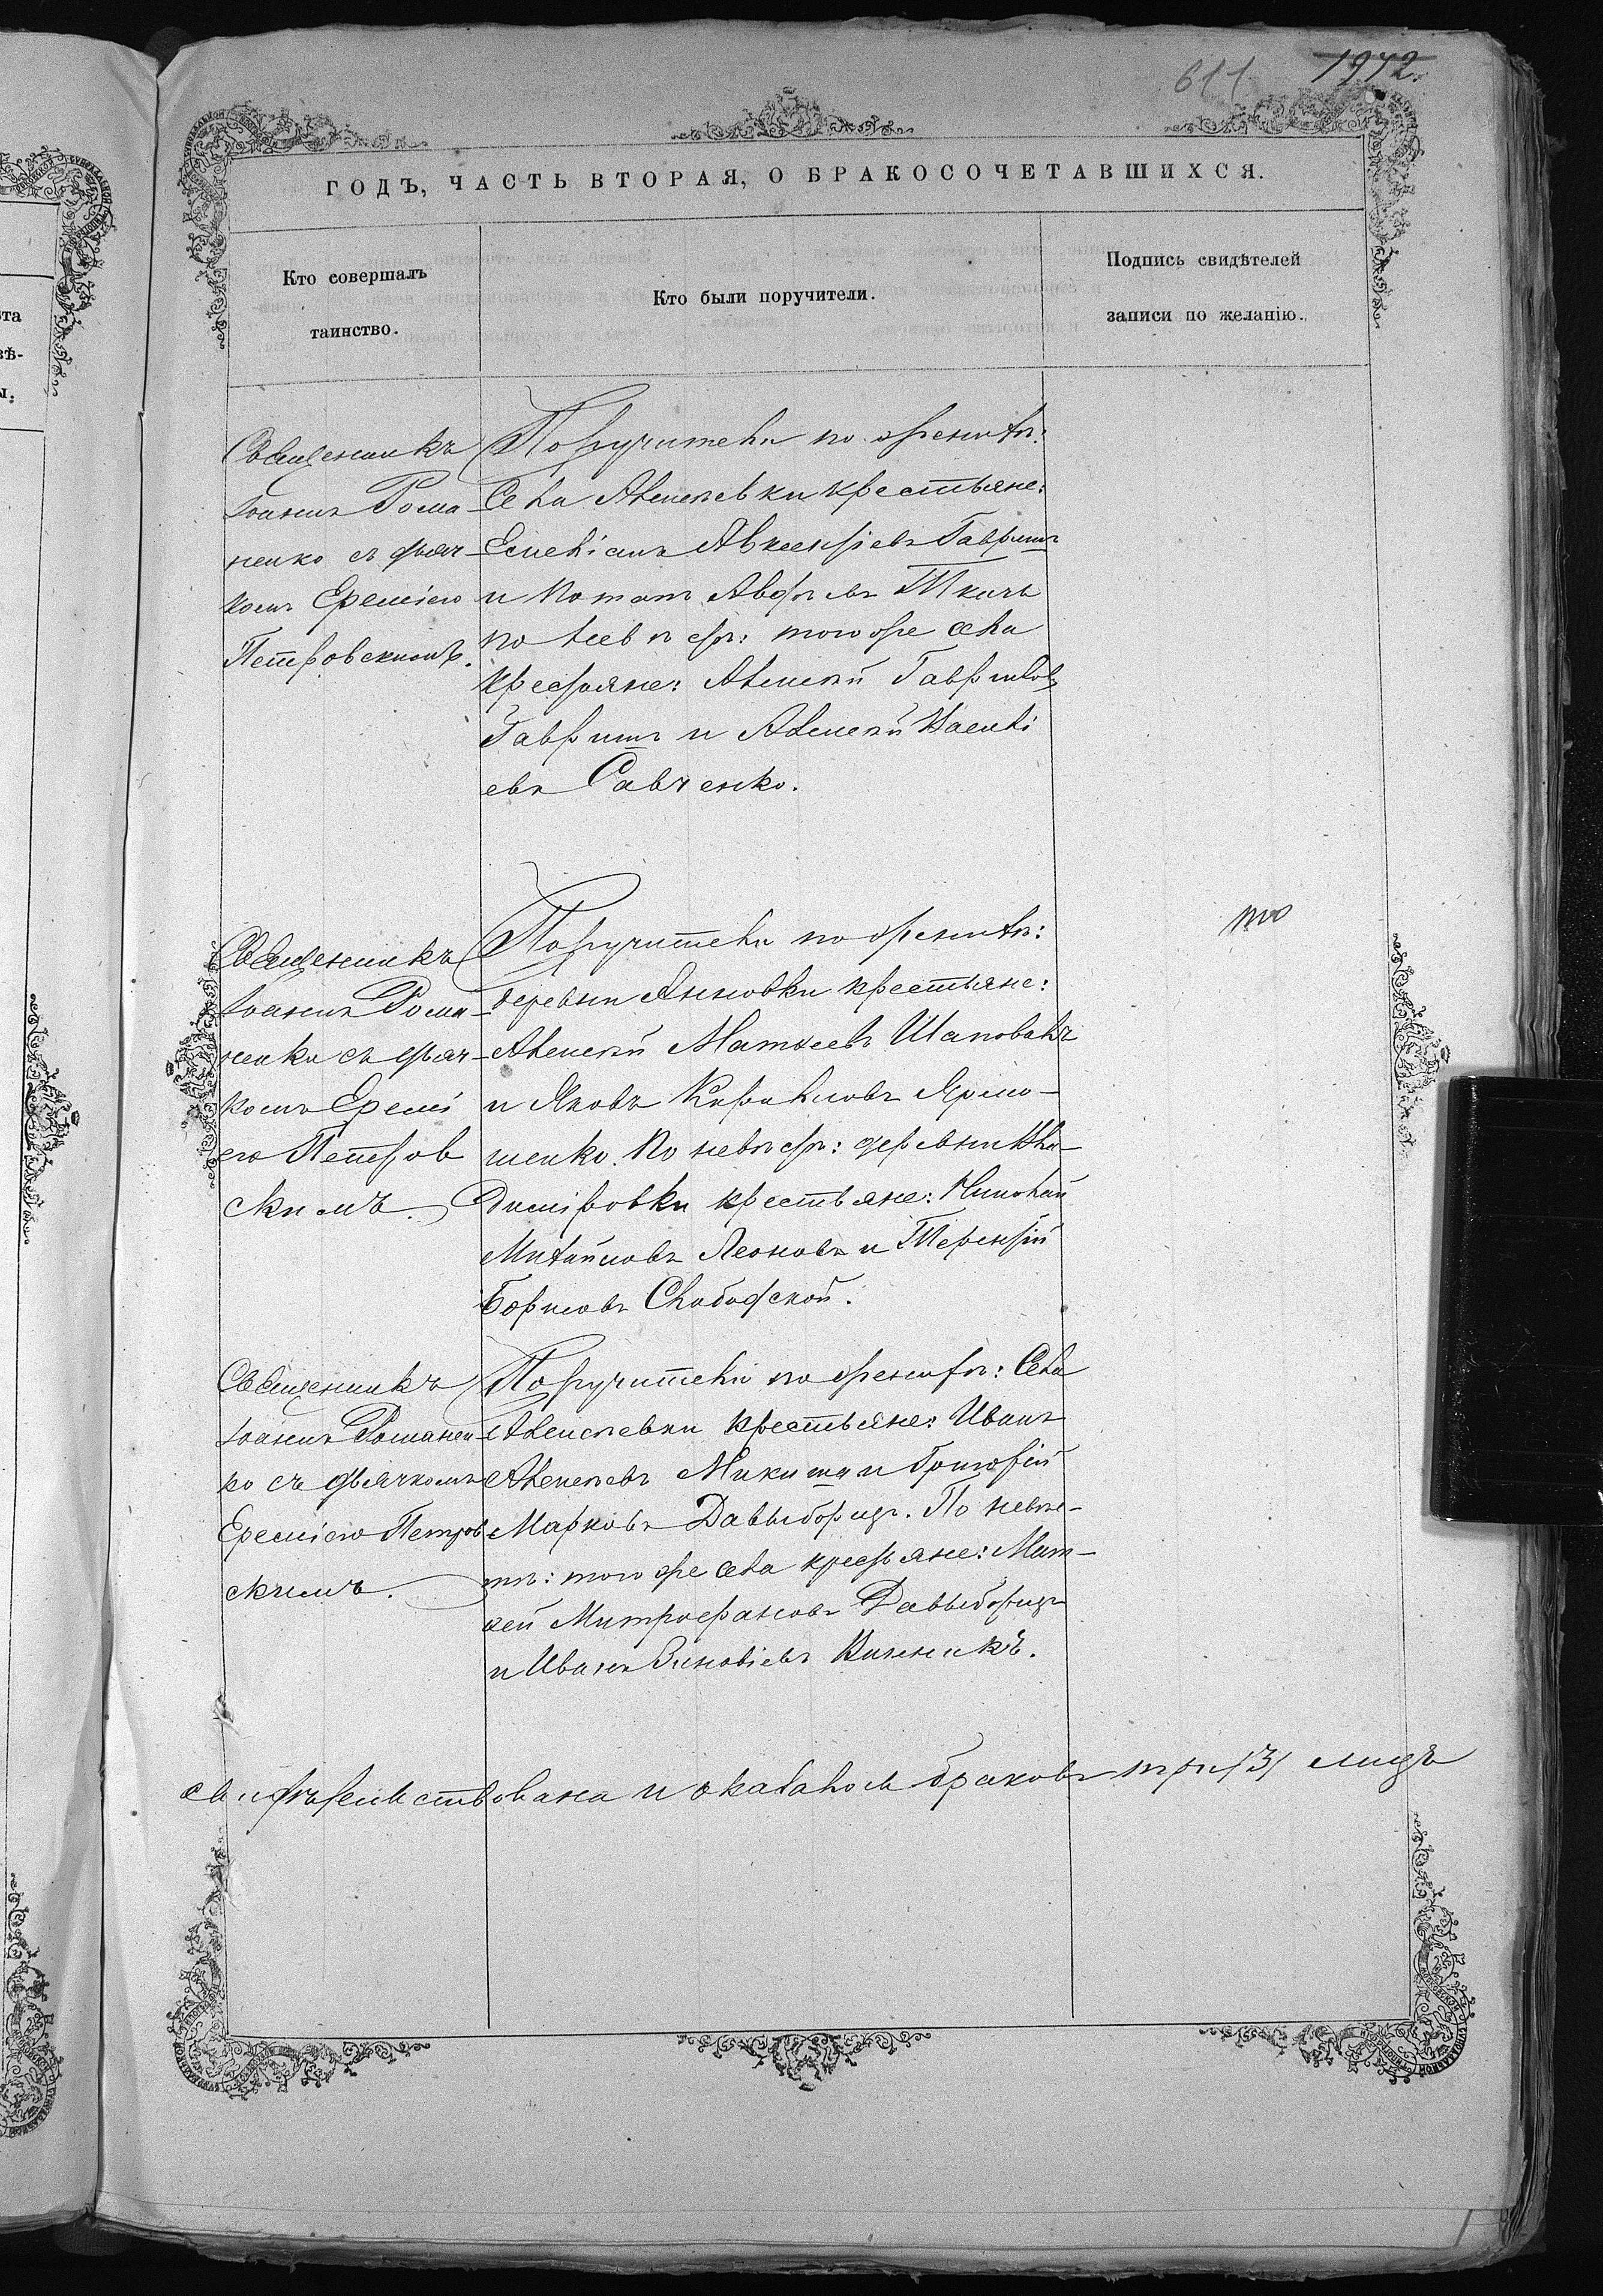 611 1942.
ГОДЪ, ЧАСТЬ ВТОРАЯ, О БРАКОСОЧЕТАВШИХСЯ.
Кто совершалъ
таинство.
Кто были поручители.
Подпись свидѣтелей
записи по желанію.
Священникъ
Іоаннъ Рома-
ненко съ дьяч-
комъ Ереміею
Петровскимъ.
Поручители по жениху:
Села Алексѣевки крестьяне:
Емеліанъ Авксентіевъ Гавришъ
и Потапъ Ткачъ
по невѣстѣ: того же села
крестьяне: Алексѣй Гавриловъ
Гавришъ и Алексѣй Василі
евъ Савченко.
Священникъ
Іоаннъ Рома-
ненко съ дьяч-
комъ Еремі
ею Петров
скимъ.
Поручители по жениху:
деревни Янновки крестьяне:
Алексѣй Матѳеевъ Шаповалъ
и Яковъ Кириловъ Ярмо-
шенко. По невѣстѣ: деревни Вла-
диміровки крестьяне: Николай
Михайловъ Леоновъ и Терентій
Борисовъ Слободской.
Священникъ
Іоаннъ Романен-
ко съ дьячкомъ
Ереміею Петров
скимъ.
Поручители по жениху: Села
Алексѣевки крестьяне: Иванъ
Алексѣевъ Микита и Григорій
Марковъ Давыборщъ. По невѣс-
тѣ: того же села крестьяне: Мат-
ѳей Митрофановъ Давыборщъ
и Иванъ Зиновіевъ Винникъ.
свидѣтельствована и браковъ три /3/ лицъ